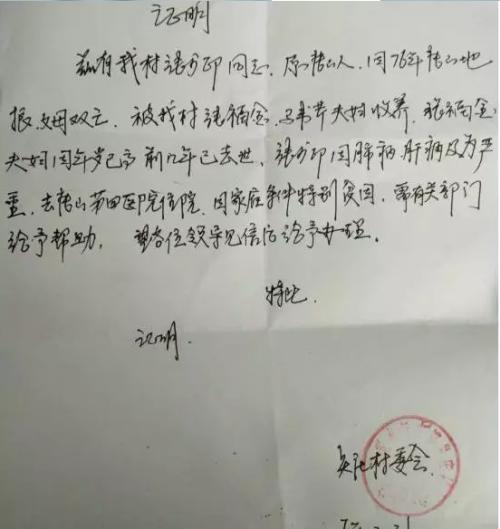 证明
兹有我村张分印同志，原唐山人，因76年唐山地
振，父母双亡，被我村张福金、马书芹夫妇收养，张福金
夫妇因年岁已高前几年已去世，张分印因肺病肝病及为严
重，去唐山第四医院住院，因家庭条件特别贫困，需有关部门
给予帮助，望各位领导见信后给予办理。
特此
证明.
村委会